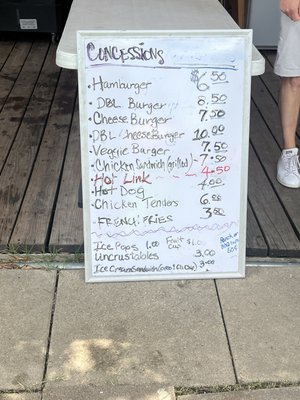 CONCESSIONS
Hamburger $6.50
DBL Burger 8.50
Cheese Burger 7.50
DBL Cheese Burger 10.00
Veggie Burger 7.50
Chicken Sandwich (grilled) 7.50
Hot Link 4.50
Hot Dog 4.00
Chicken Tenders 6.50
FRENCH FRIES 3.50
Ice Pops 1.00 Fruit Cup $1.00
Uncrustables 3.00
Ice Cream Sandwich 3.00